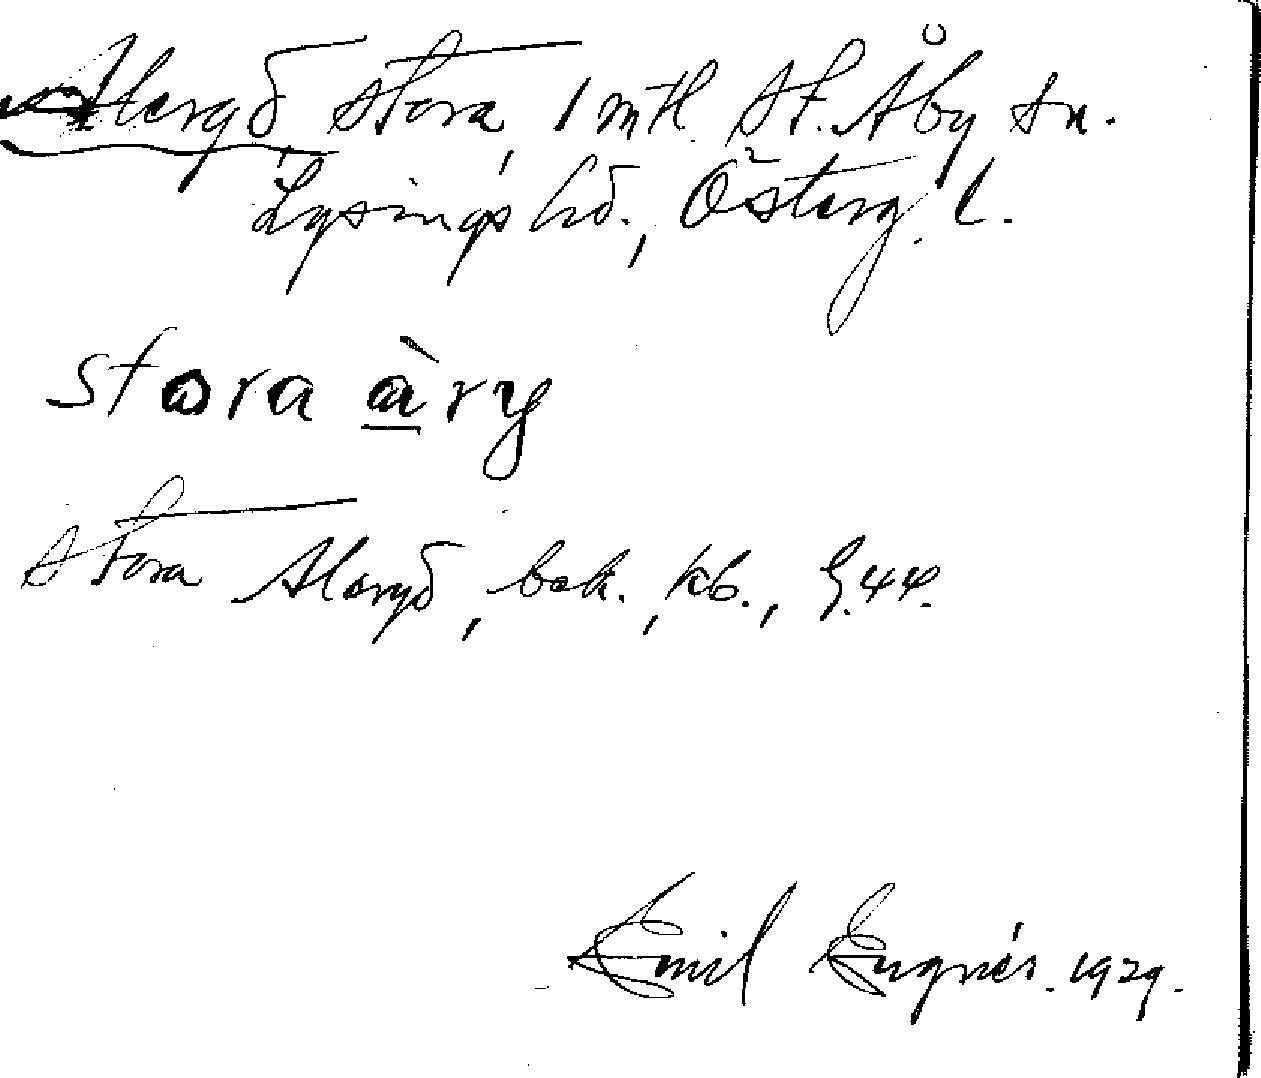 Aleryd, stora, 1 mtl. St. Åby sn.
Lysings hd., Österg. l.
stora àry
Stora Aleryd, bok., kb., G.44.
Emil Engnér. 1929.